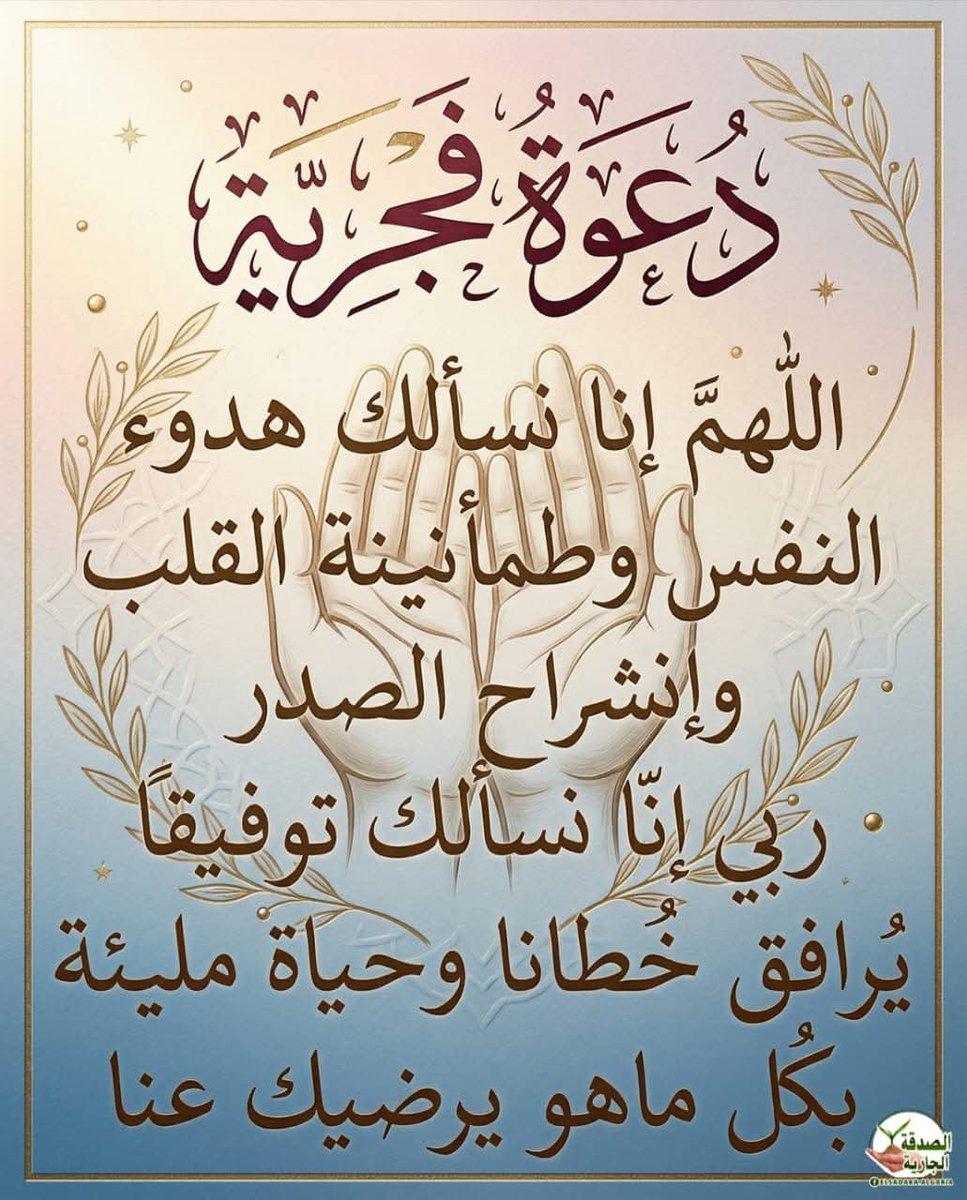 دُعَوَةُ فَجْرِيَّة
اللّٰهمَّ إنا نسألك هدوء
النفس وطمأنينة القلب
وإنشراح الصدر
ربي إنّا نسألك توفيقًا
يُرافق خُطانا وحياة مليئة
بكُل ماهو يرضيك عنا
الصدقة
الجارية
ELSADAKA.ALGERIA